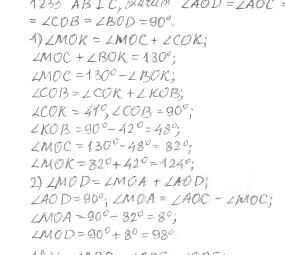 1233 AB⊥C, ∠AOD = ∠AOC =
= ∠COB = ∠BOD = 90°.
1) ∠MOK = ∠MOC + ∠COK;
∠MOC + ∠BOK = 130°;
∠MOC = 130° - ∠BOK;
∠COB = ∠COK + ∠KOB;
∠COK = 41°, ∠COB = 90°;
∠KOB = 90° - 42° = 48°;
∠MOC = 130° - 48° = 82°;
∠MOK = 82° + 42° = 124°;
2) ∠MOD = ∠MOA + ∠AOD;
∠AOD = 90°; ∠MOA = ∠AOC - ∠MOC;
∠MOA = 90° - 82° = 8°;
∠MOD = 90° + 8° = 98°.